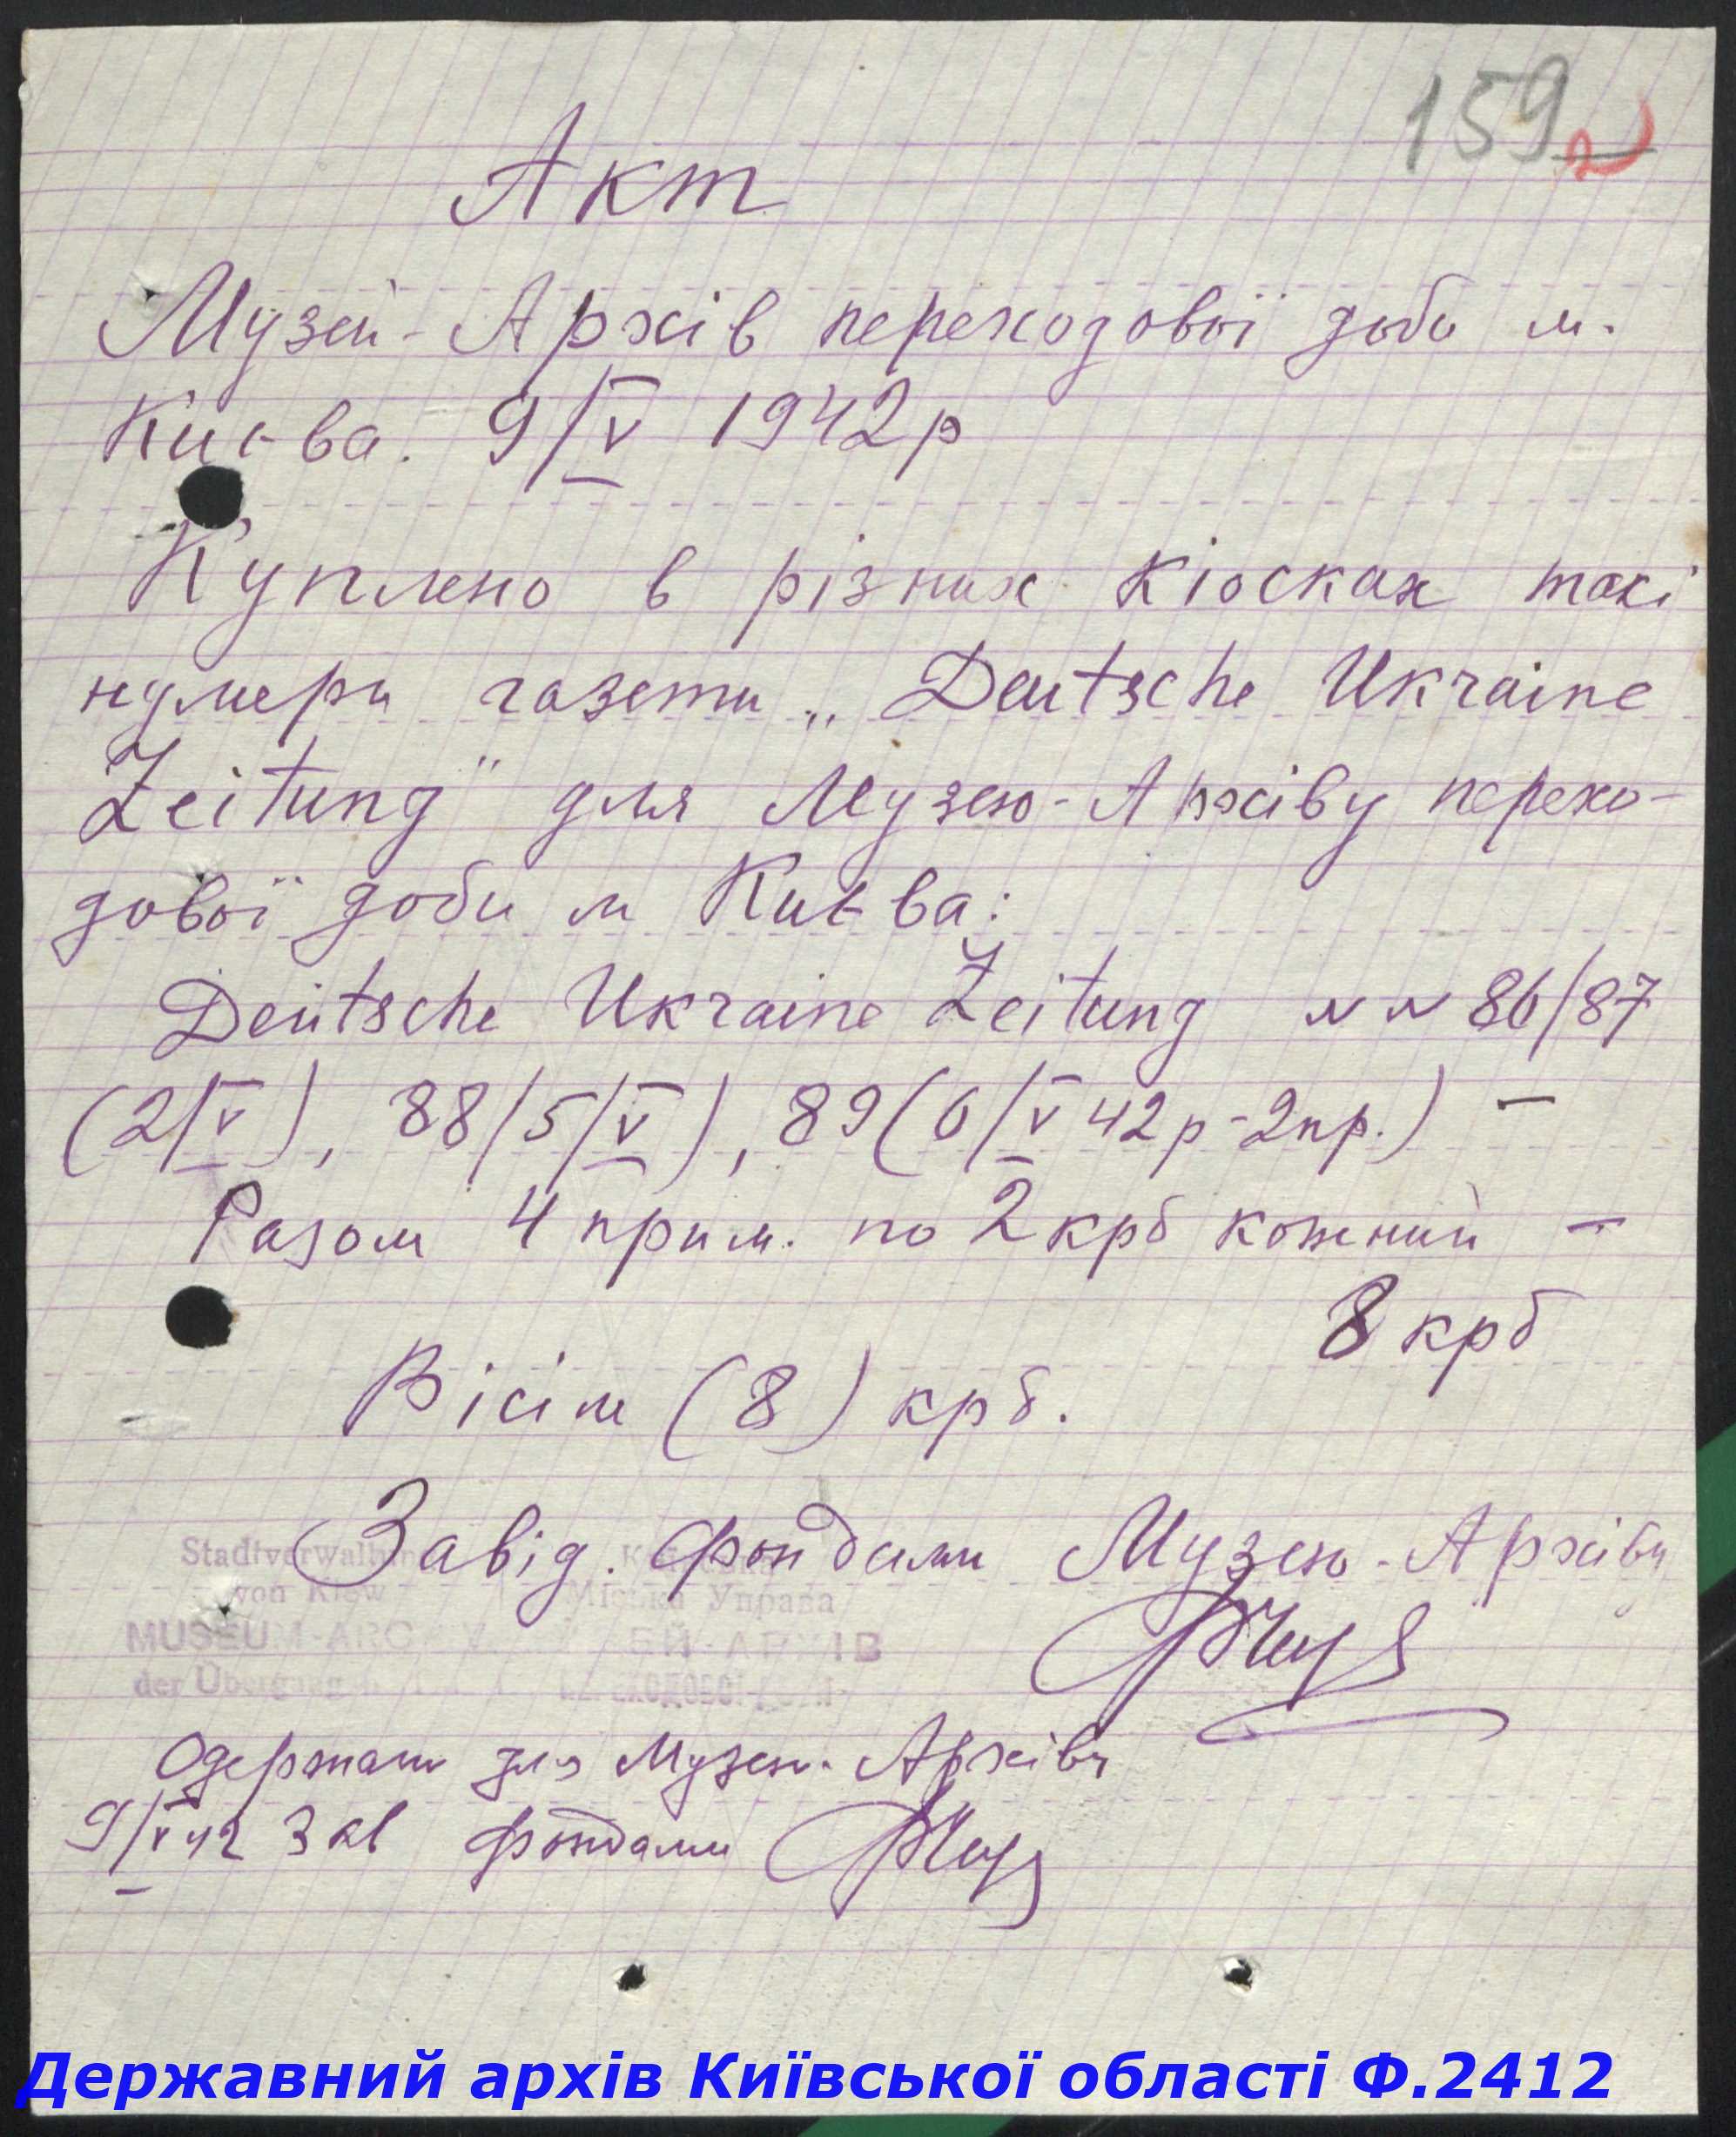 159
Акт
Музей-Архів переходової доби м.
Києва. 9/V 1942 р
Куплено в різних кіосках такі
нумери газети „Deutsche Ukraine
Zeitung" для Музею-Архіву перехо-
дової доби м Києва:
Deutsche Ukraine Zeitung №№ 86/87
(2/V), 88/5/V), 89(6/V 42р-2пр.) —
Разом 4 прим. по 2 крб кожний —
8 крб
Вісім (8) крб.
Завід. фондами Музею-Архіву
Stadtverwaltung
von Kiew
Міська Управа
MUSEUM-ARCHIV
der Übergangs
Одержали для Музею-Архіву
9/V 42 Зав фондами
Державний архів Київської області Ф.2412